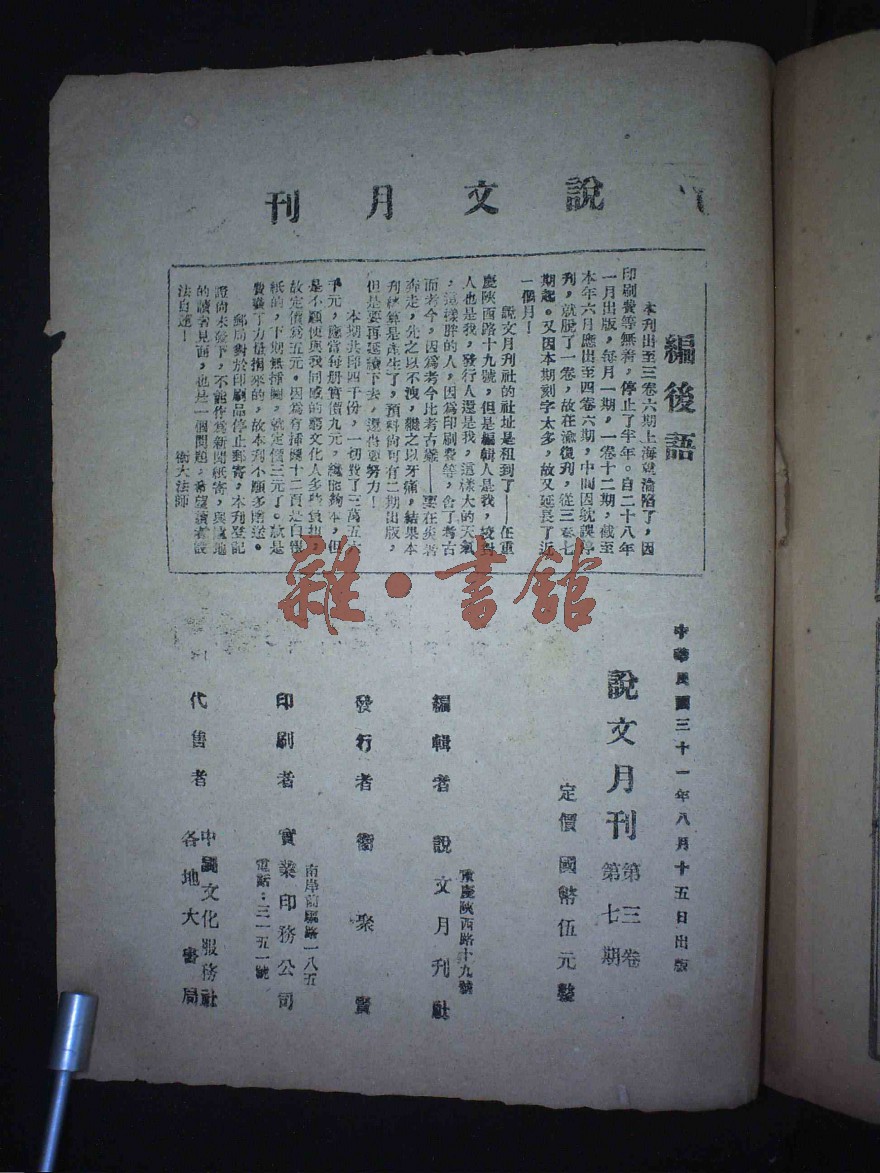 說文月刊
編後語
本刊出至三卷六期上海望淪陷了，因
印刷費等無着，停止了半年。自二十八年
一月出版，每月一期，一卷十二期，截至
本年六月應出至四卷六期，中間因耽誤停
刊，就脫了一卷，故在渝復刊，從三卷七
期起。又因本期刻字太多，故又延長了近
一個月！
說文月刊社的社址是租到了——在重
慶陝西路十九號，但是編輯人是我，校對
人也是我，發行人還是我，這樣大的天氣
，這樣胖的人，因爲印刷費等，舍了考古
而考今，因爲考今比考古難——要在炎暑
奔走，先之以不洩，繼之以牙痛，結果本
刊終算是產生了，預料尚可有二期出版，
但是要再延續下去，還得要努力！
本期共印四千份，一切費了三萬五六
千元，應當每册實價九元，纔能夠本，但
是不願使與我同感的窮文化人多些負担，
故定價爲五元。因爲有插圖十二頁是白報
紙的，下期無插圖，就定價三元了。就是
費盡了力量得來的，故本刊不願多贈送。
郵局對於印刷品停止郵寄，本刊登記
證尚未發下，不能作爲新聞紙寄，與各地
的讀者見面，也是一個問題，希望讀者設
法自運！
衛大法師
中華民國三十一年八月十五日出版
說文月刊 第三卷 第七期
定價國幣伍元整
編輯者 說文月刊社
重慶陝西路十九號
發行者 衞聚賢
印刷者 實業印務公司
南岸前驅路一八五
電話：三一五一號
代售者 中國文化服務社
各地大書局
雜·書館